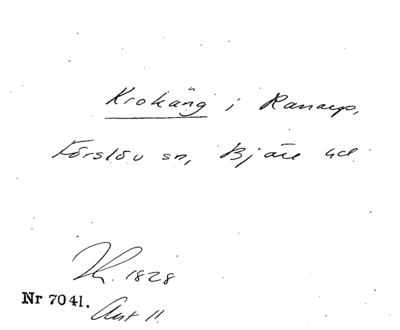 Krokäng i Ranarp,
Förslöv sn, Bjäre hd.
1828
Nr 7041.
Akt 11.